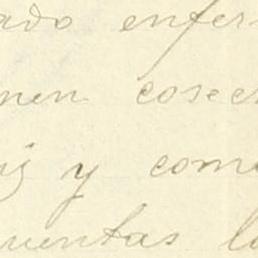 ado enfer
nen cosec
y com
uentas la